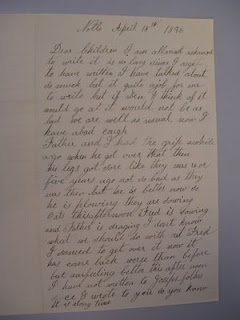 Nollo April 18th 1896
Dear Children I am allmost ashamed
to write it is so long since I ought
to have written I have talked about
so much but it quite a job for me
to write but if when I think of it
would go at it would not be so
bad we are well as usual now I
have a bad cough
Father and I had the grip
ago when he got over that then
his legs got sore like they was 4 or
five years ago not so bad as they
was then but he is better now so
he is plowing they are sowing
oats this afternoon Fred is sowing
and Father is draging I don't know
what we should do with out Fred
I seemed to get over it now it
has come back worse than before
but am feeling better this after noon
I had not written to folks
since I wrote to you do you know
it is long time